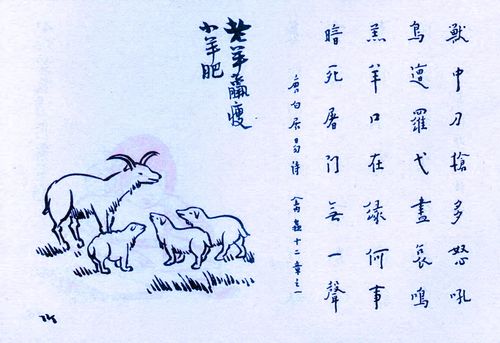 獸中刀槍多怒吼
鳥遭羅弋盡哀鳴
羔羊口在緣何事
暗死屠門無一聲
唐白居易詩（禽蟲十二章之一）
老羊羸瘦
小羊肥